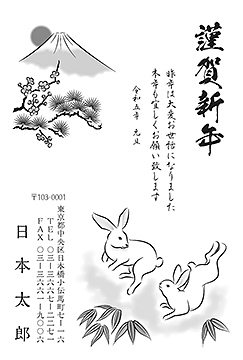 謹賀新年
昨年は大変お世話になりました
本年も宜しくお願い致します
令和五年　元旦
〒103-0001
東京都中央区日本橋小伝馬町七ー一六
ＴＥＬ　〇三ー三六六七ー二二七一
ＦＡＸ　〇三ー三六六一ー九〇〇六
日本太郎